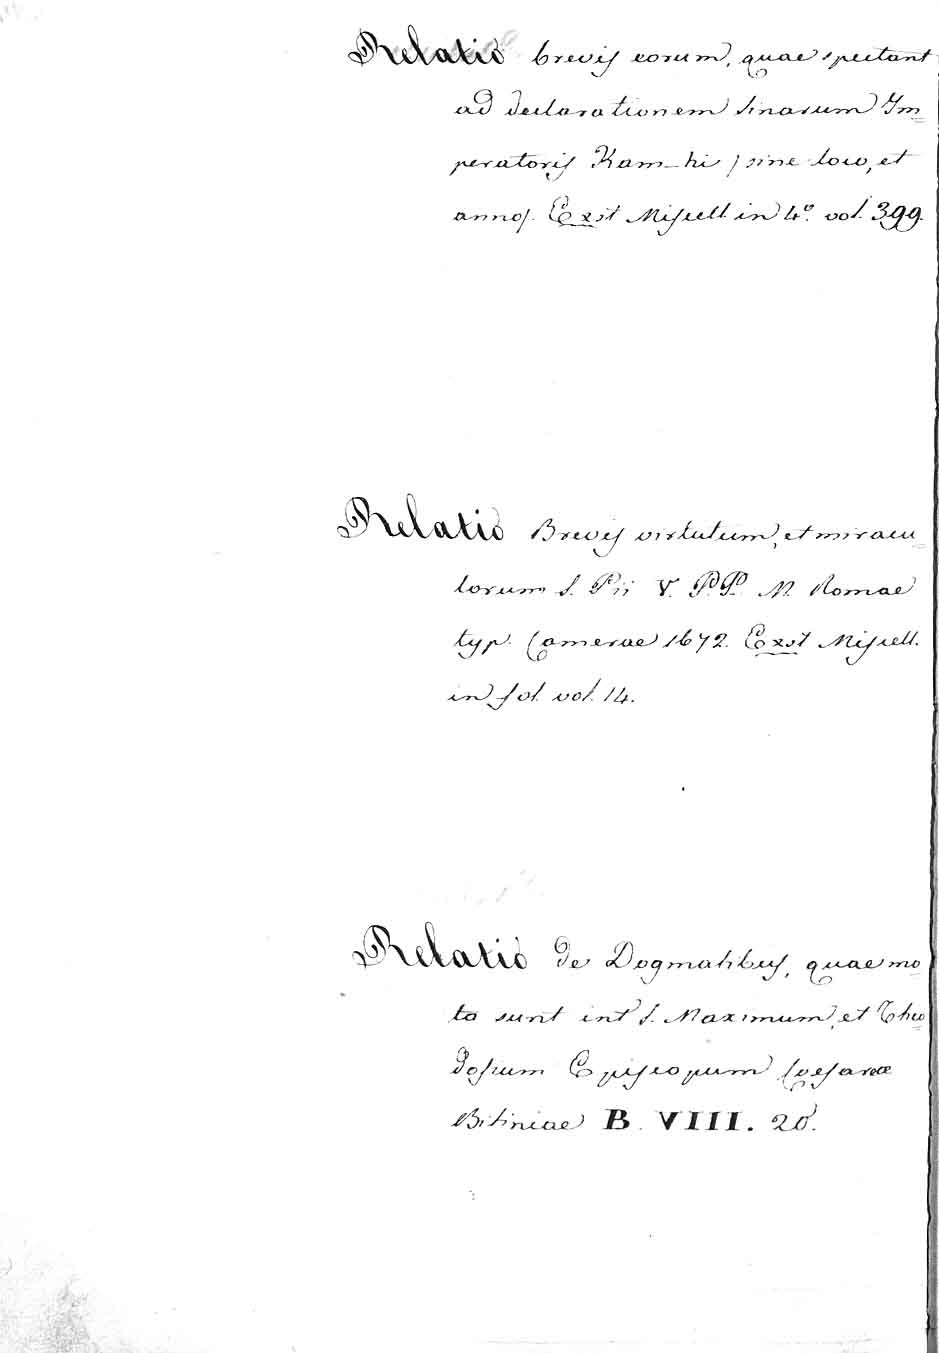 Relatio brevis eorum, quae spectant
ad declarationem Sinarum Im=
peratoris Kam-hi / sine loco, et
anno/. Exst Miscell. in 4º. vol. 399.
Relatio Brevis virtutum, et miracu=
lorum S. Pii V. P.P. M. Romae
typ. Camerae 1672. Exst Miscell.
in fol. vol. 14.
Relatio de Dogmatibus, quae mo
ta sunt int S. Maximum, et Theo
dosium Episcopum Caesareae
Bitiniae B. VIII. 20.